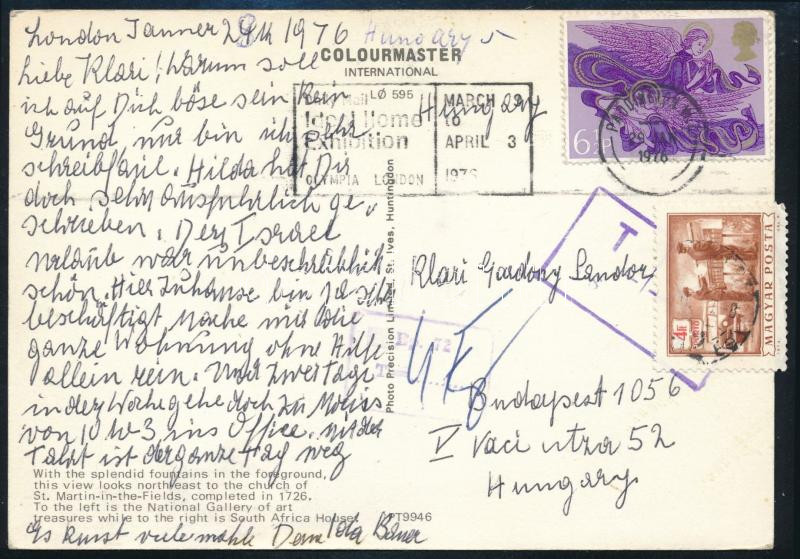 London Janner 29th 1976
Liebe Klari! Warum soll
ich auf Dich böse sein kein
Grund, nur bin ich sehr
schreibfaul. Hilda hat Dir
doch sehr ausführlich ge
schrieben. Der Israel
urlaub war unbeschreiblich
schön. Hier Zuhause bin ja sehr
beschäftigt mache mir die
ganze Wohnung ohne Hilfe
allein rein. Und zwei Tage
in der Woche gehe doch zu
von 10 W 3 ins Office. mit der
Fahrt ist der ganze Tag weg
Es kusst viele mahle Deine Ida Bauer
Hungary
COLOURMASTER
INTERNATIONAL
LØ 595
Mail
Ideal Home
Exhibition
OLYMPIA LONDON
MARCH 9
to
APRIL 3
1976
Hungary
6½P
PADDINGTON
29 JAN
1976
T
MAGYAR POSTA
4 Ft
PORTO
Klari Gardony Sandor
4F
Budapest 1056
V Vaci utza 52
Hungary
T
Photo Precision Limited, St. Ives, Huntingdon
With the splendid fountains in the foreground,
this view looks northeast to the church of
St. Martin-in-the-Fields, completed in 1726.
To the left is the National Gallery of art
treasures while to the right is South Africa House.
PT9946